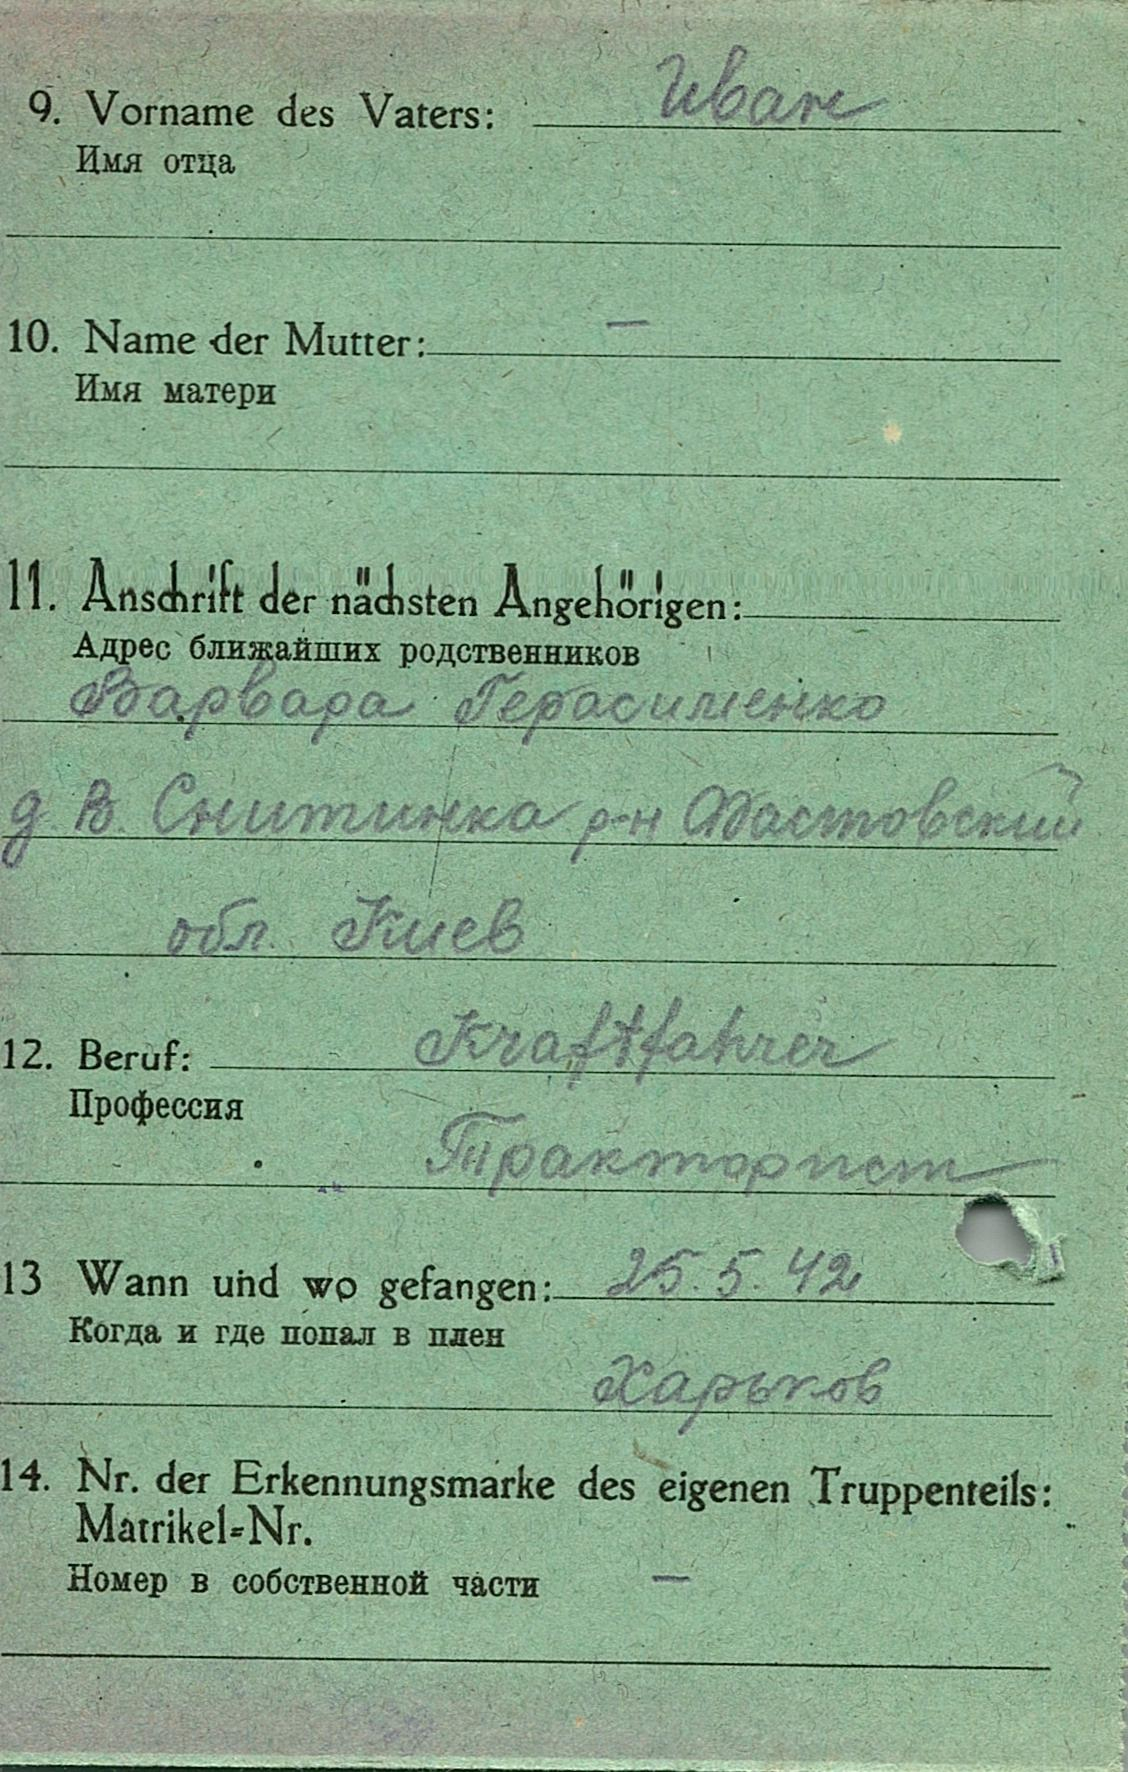 9. Vorname des Vaters: Иван
Имя отца
10. Name der Mutter: —
Имя матери
11. Anschrift der nächsten Angehörigen:
Адрес ближайших родственников
Варвара Герасименко
д В. Снитинка р-н Фастовский
обл. Киев
12. Beruf: Kraftfahrer
Профессия
Тракторист
13 Wann und wo gefangen: 25.5.42
Когда и где попал в плен
Харьков
14. Nr. der Erkennungsmarke des eigenen Truppenteils:
Matrikel=Nr.
Номер в собственной части —